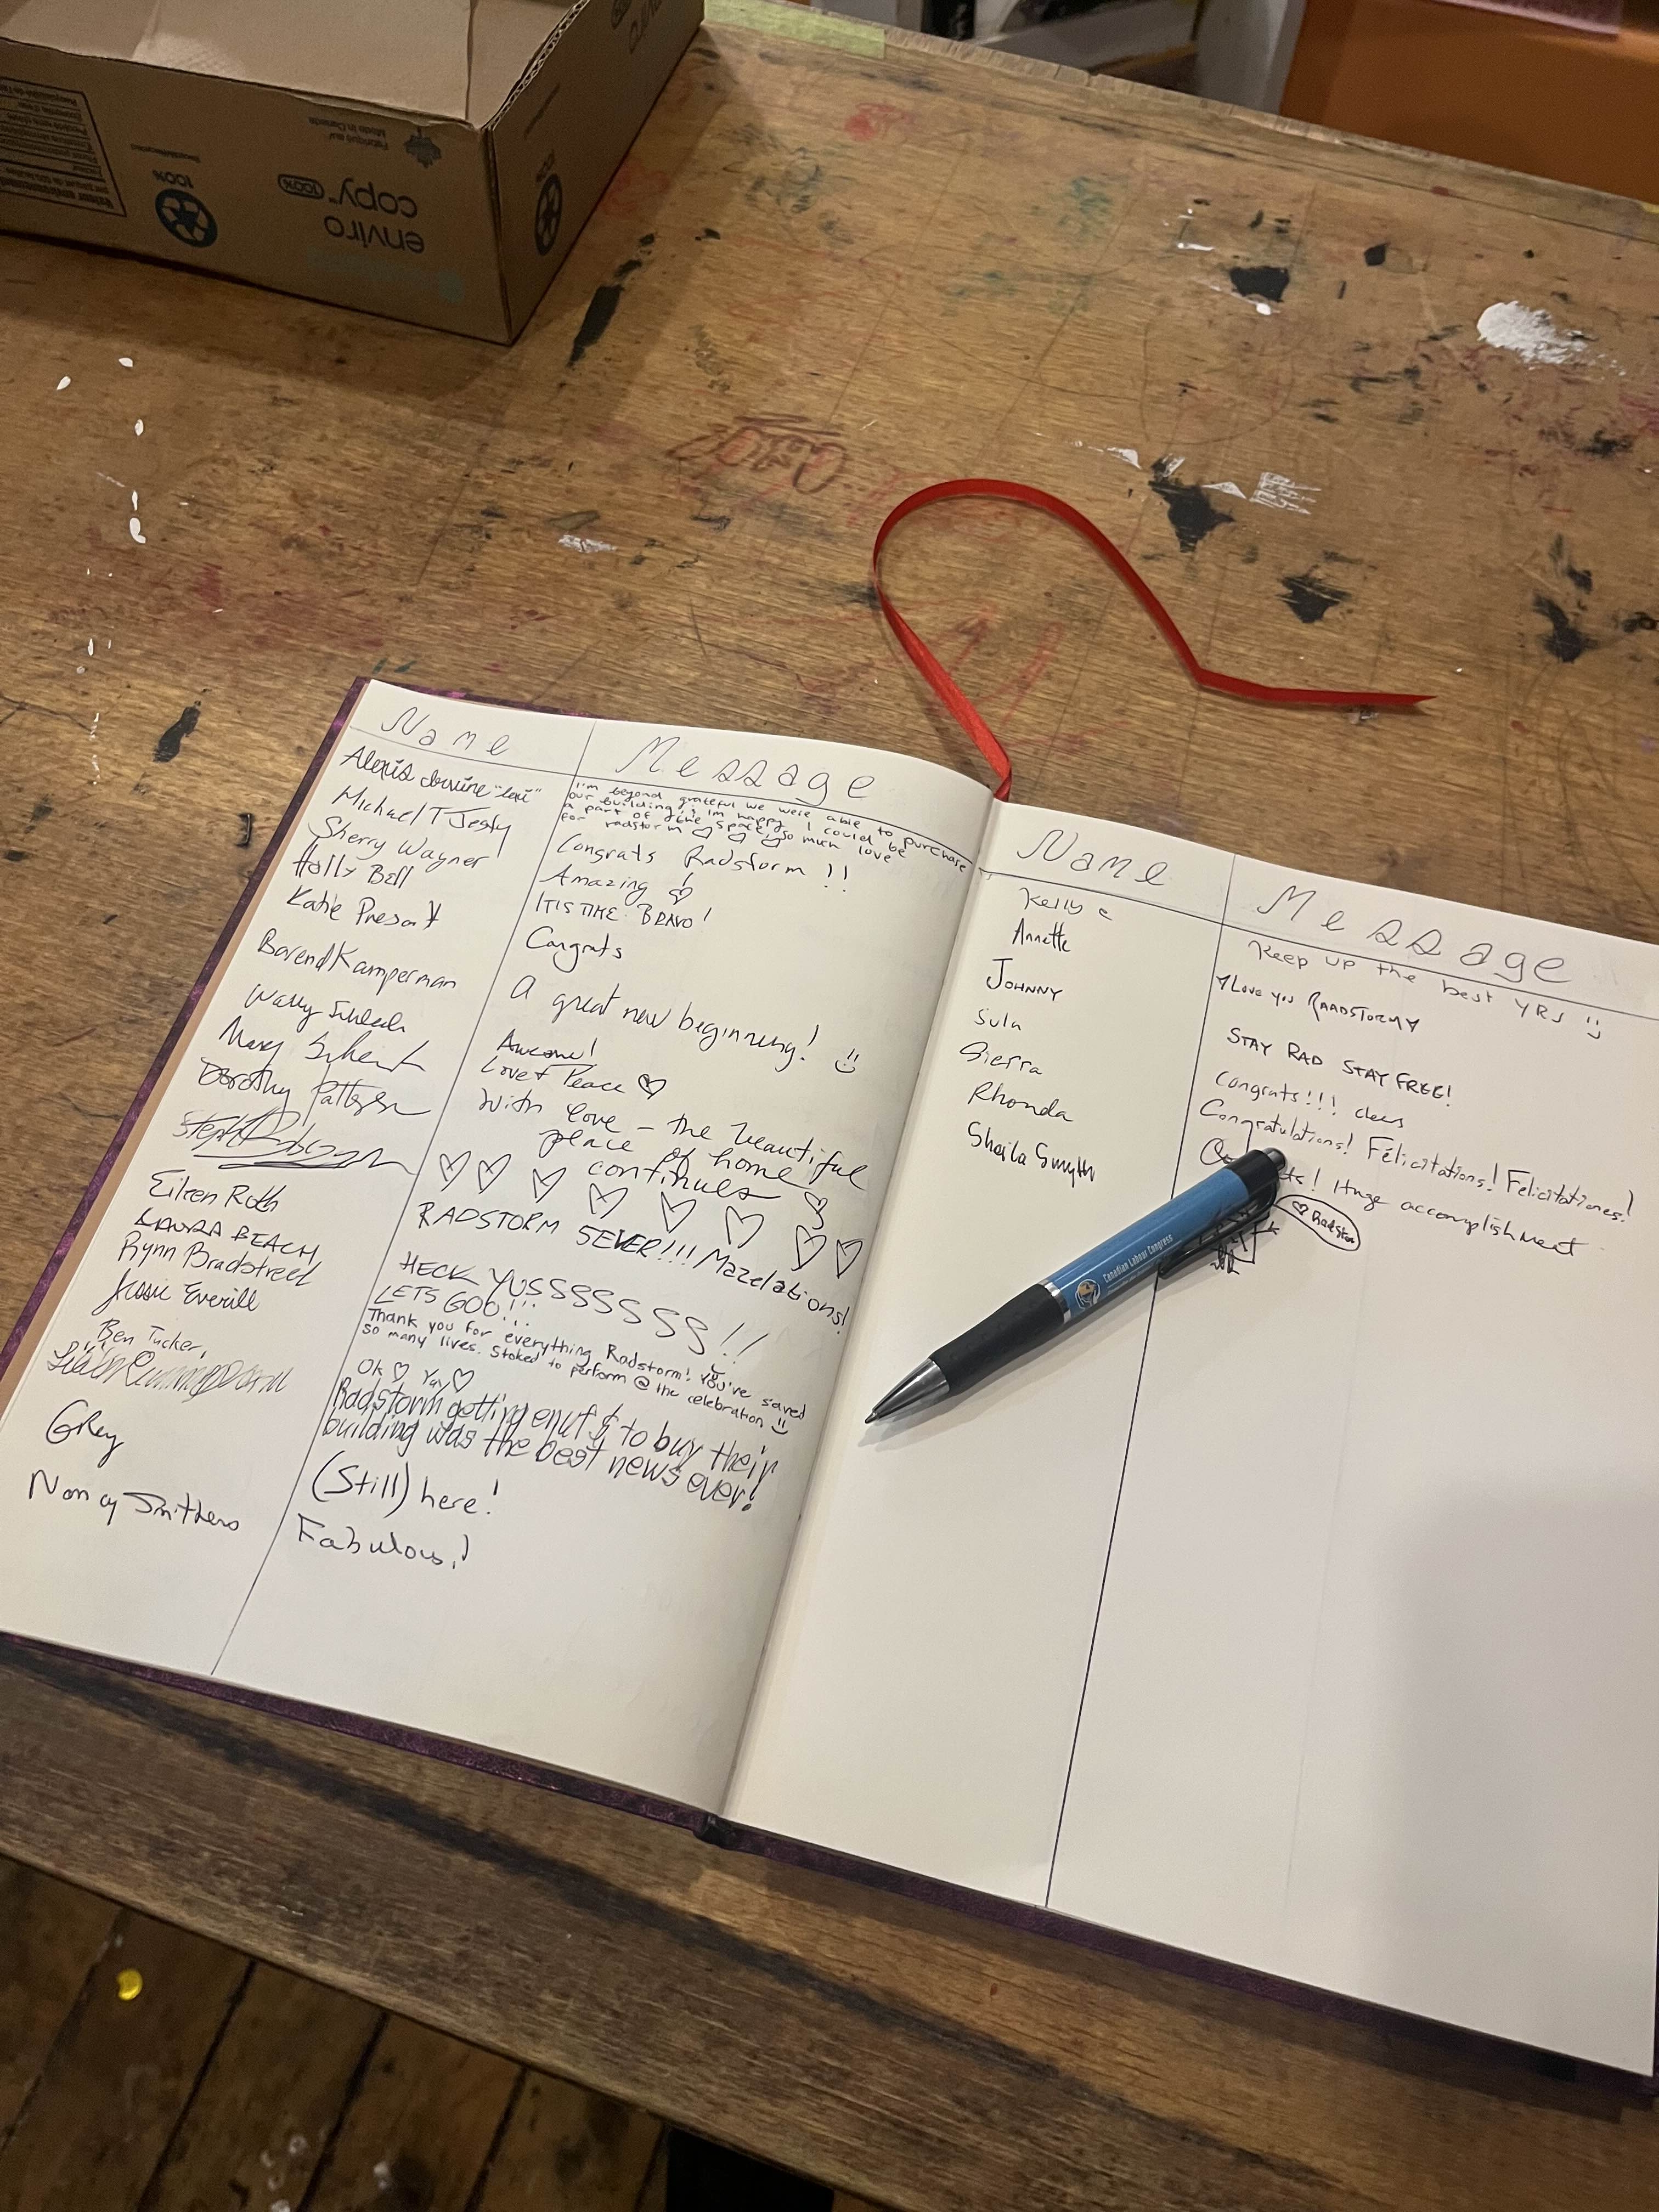 enviro
copy™ 100%
100%
Fabriqué au/
Made in Canada
Name
Message
Alexis "Lexi"
I'm beyond grateful we were able to purchase
our building!! Im happy I could be
a part of the space, so much love
for radstorm ♡ ♡ ♡
Michael T Jesty
Congrats Radstorm !!
Sherry Wayner
Amazing
Holly Bell
IT IS TIME. BRAVO!
Katie
Congrats
Barend Kamperman
A great new beginning!
Wally
Awesome!
Mary
Love & Peace ♡
Dorothy Patterson
With love – the beautiful
place of home
continues
Steph
♡ ♡ ♡ ♡ ♡ ♡ ♡ ♡
Eileen Roth
RADSTORM 5EVER!!! Mazelations!
LAURA BEACH
HECK YUSSSSSSS!!
Rynn Bradstreet
LETS GOO!!!
Jessie Everill
Thank you for everything Radstorm! You've saved
so many lives. Stoked to perform @ the celebration :)
Ben Tucker,
Ok ♡ Yay ♡
Radstorm getting enuf $ to buy their
building was the best news ever!
Grey
(Still) here!
Nancy Smithers
Fabulous!
Name
Message
Kelly c
Keep up the best YRS :)
Annette
Love you RAADSTORM
JOHNNY
STAY RAD STAY FREE!
Sula
Congrats!!!
Sierra
Congratulations! Félicitations! Felicitationes!
Rhonda
Huge accomplishment
Sheila Smyth
♡ Radstorm
Canadian Labour Congress